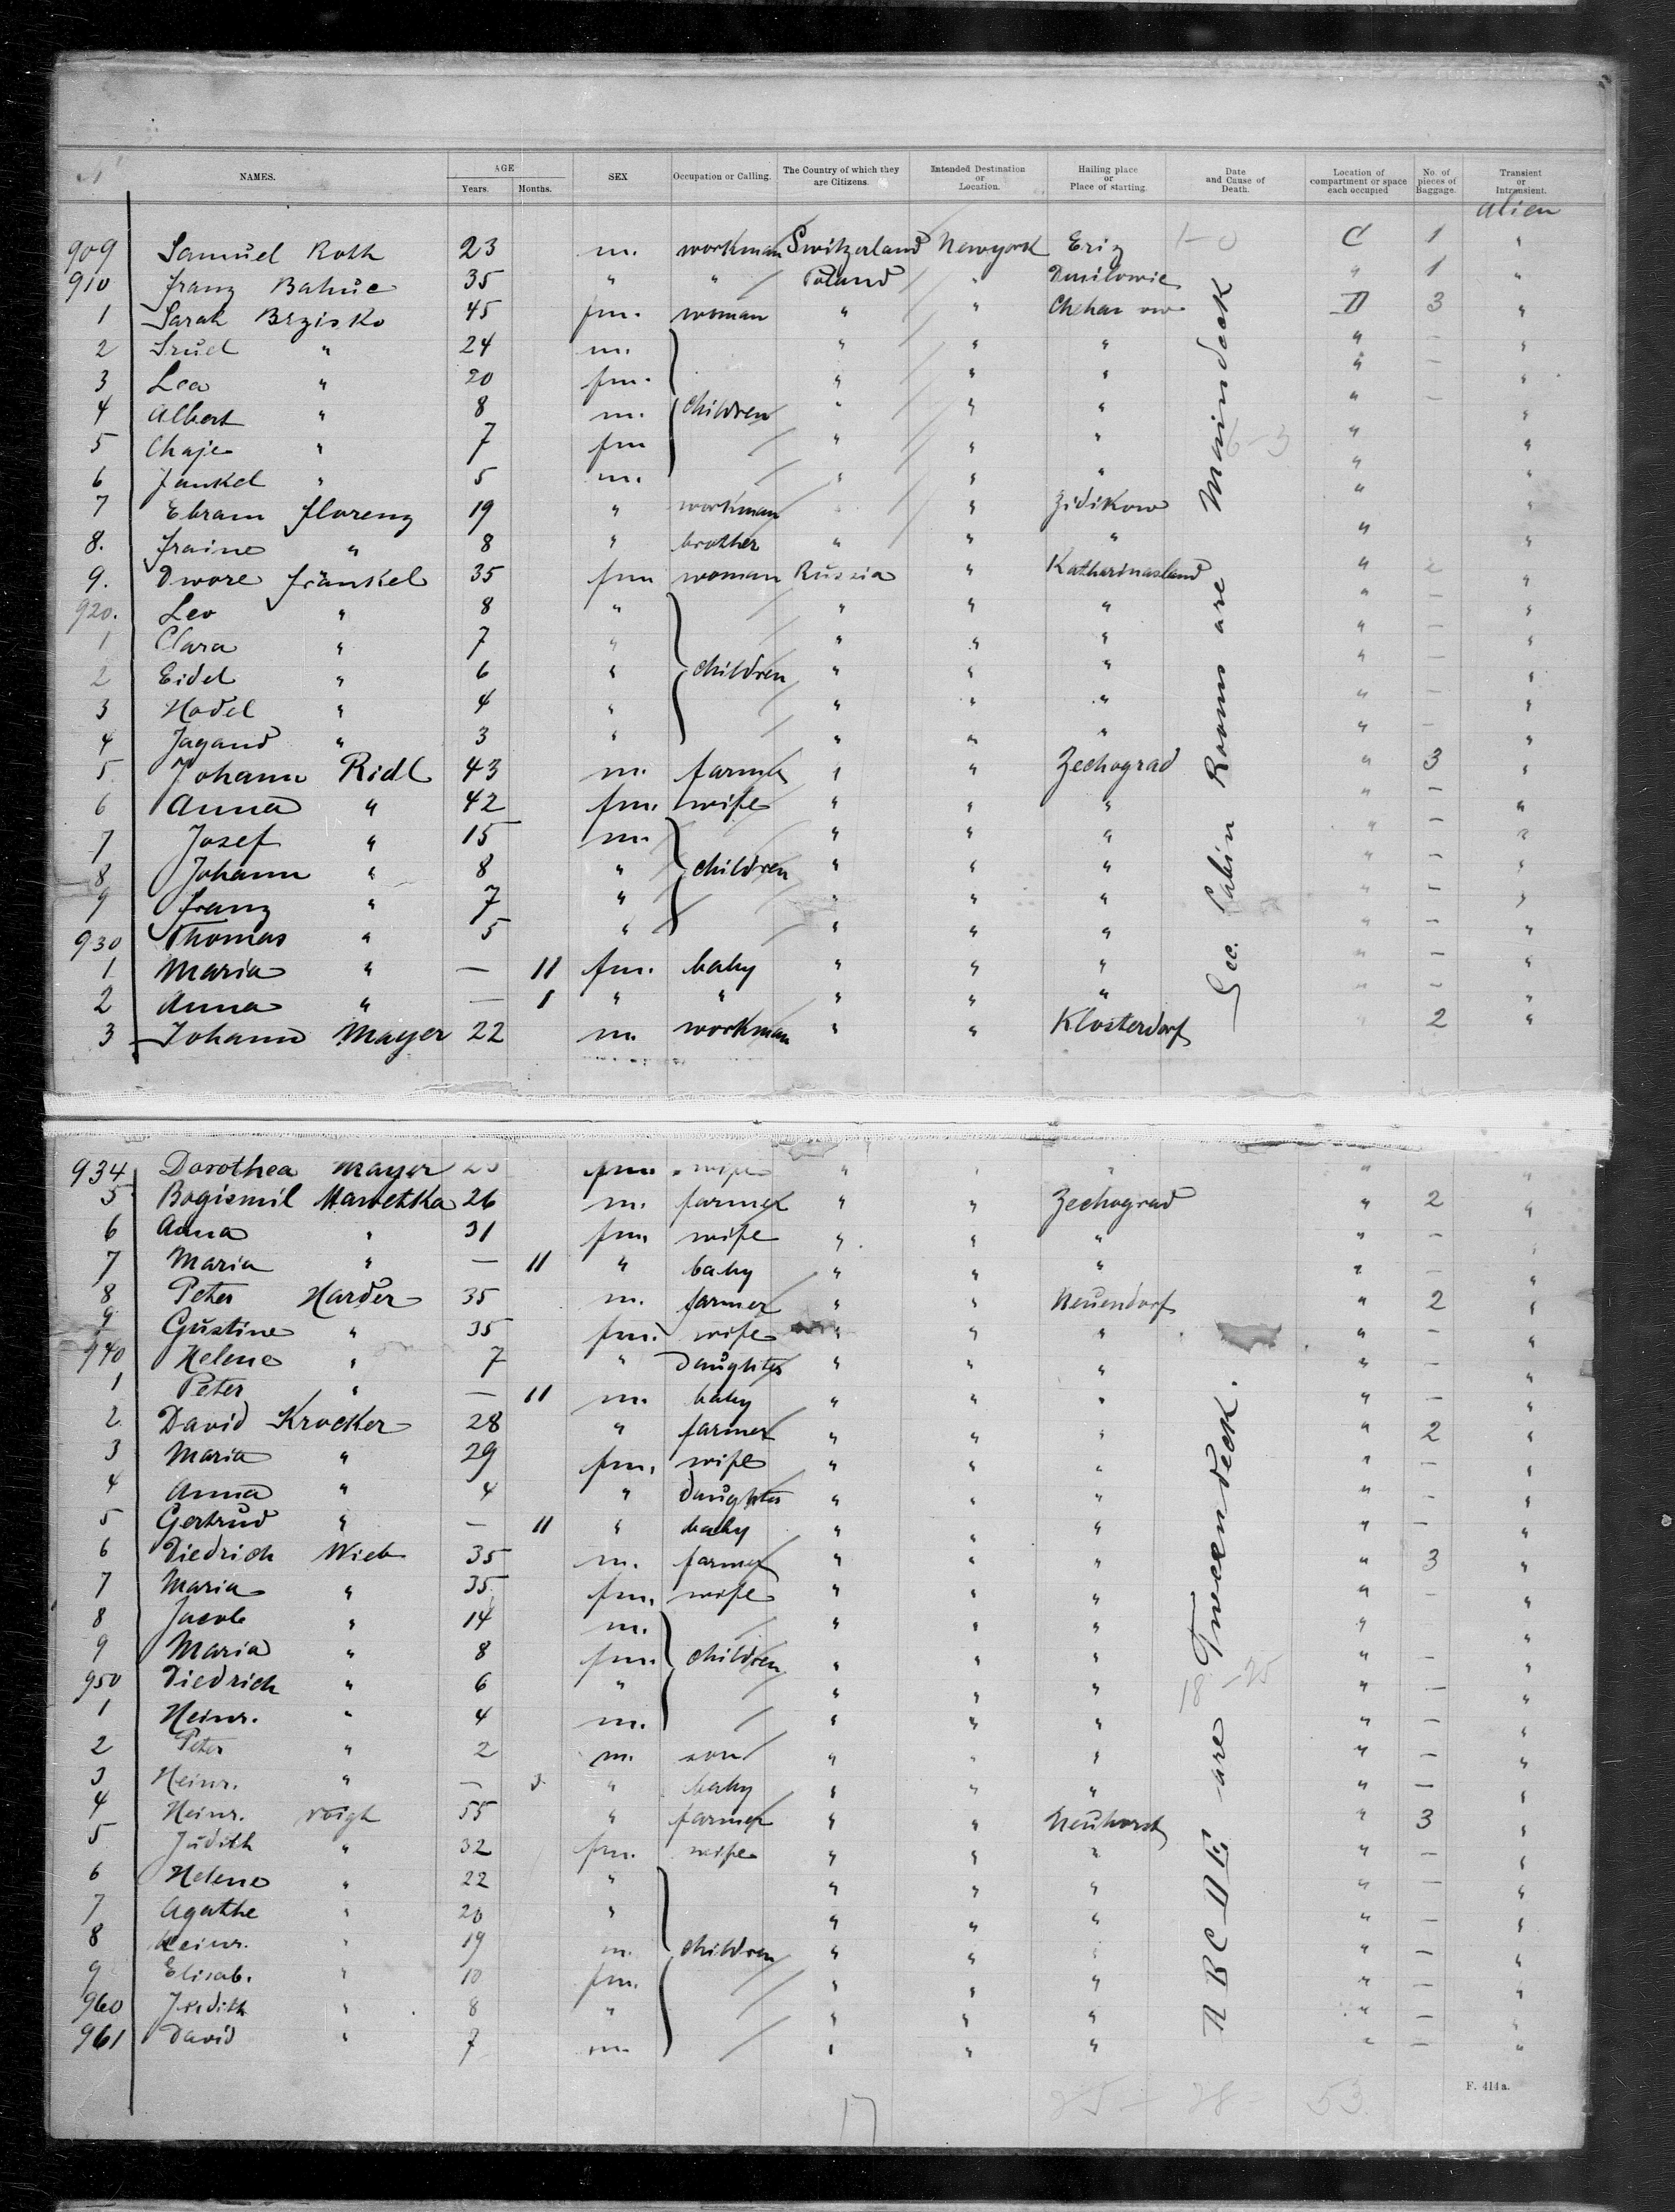 NAMES. AGE Years. Months. SEX Occupation or Calling. The Country of which they are Citizens. Intended Destination or Location. Hailing place or Place of starting. Date and Cause of Death. Location of compartment or space each occupied No. of pieces of Baggage. Transient or Intransient.
alien
909 Samuel Roth 23 m. workman Switzerland Newyork Eriz C 1 "
910 Franz 35 " " Poland " 1 "
1 Sarah Brzisko 45 fm. woman " " D 3 "
2 Srul " 24 m. " " " " — "
3 Lea " 20 fm. " " " " — "
4 Albert " 8 m. children " " " " — "
5 Chaje " 7 fm " " " " "
6 Jankel " 5 m. " " " " "
7 Ebram Florenz 19 " workman " " Zidikow " "
8. " 8 " brother " " " " "
9. Dwore Fränkel 35 fm woman Russia " Katharinasland " "
920. Leo " 8 " " " " " — "
1 Clara " 7 " " " " " — "
2 Eidel " 6 " children " " " " — "
3 Hodel " 4 " " " " " — "
4 Jagand " 3 " " " " " — "
5 Johann Ridl 43 m. farmer " " Zechograd " 3 "
6 Anna " 42 fm. wife " " " " — "
7 Josef " 15 m. " " " " — "
8 Johann " 8 " children " " " " — "
9 Franz " 7 " " " " " — "
930 Thomas " 5 " " " " " — "
1 Maria " — 11 fm. baby " " " " — "
2 Anna " — 1 " " " " " " — "
3 Johann Mayer 22 m. workman " " Klosterdorf " 2 "
Sec. Cabin Rooms are Maindeck
934 Dorothea Mayer fm. wife " " " " "
5 Bogismil Hawetka 26 m. farmer " " Zechograd " 2 "
6 Anna " 31 fm. wife " " " " — "
7 Maria " — 11 " baby " " " " — "
8 Peter Harder 35 m. farmer " " Neuendorf " 2 "
9 Gustine " 35 fm. wife " " " " — "
940 Helene " 7 " daughter " " " " — "
1 Peter " — 11 m. baby " " " " — "
2 David Krocker 28 " farmer " " " " 2 "
3 Maria " 29 fm. wife " " " " — "
4 Anna " 4 " daughter " " " " — "
5 Gertrud " — 11 " baby " " " " — "
6 Diedrich Wieb 35 m. farmer " " " " 3 "
7 Maria " 35 fm. wife " " " " — "
8 Jacob " 14 m. " " " " "
9 Maria " 8 fm. children " " " " — "
950 Diedrich " 6 " " " " " — "
1 Heinr. " 4 m. " " " " — "
2 Peter " 2 m. son " " " " — "
3 Heinr. " — 3 " baby " " " " — "
4 Heinr. Voigh 55 " farmer " " Neuhorst " 3 "
5 Judith " 32 fm. wife " " " " — "
6 Helene " 22 " " " " " — "
7 Agathe " 20 " " " " " — "
8 Heinr. " 19 m. children " " " " — "
9 Elisab. " 10 fm. " " " " — "
960 Judith " 8 " " " " " — "
961 David " 7 m. " " " " — "
A B C D E are Tweendeck.
18 – 25
25 – 28 – 53
17
F. 414a.